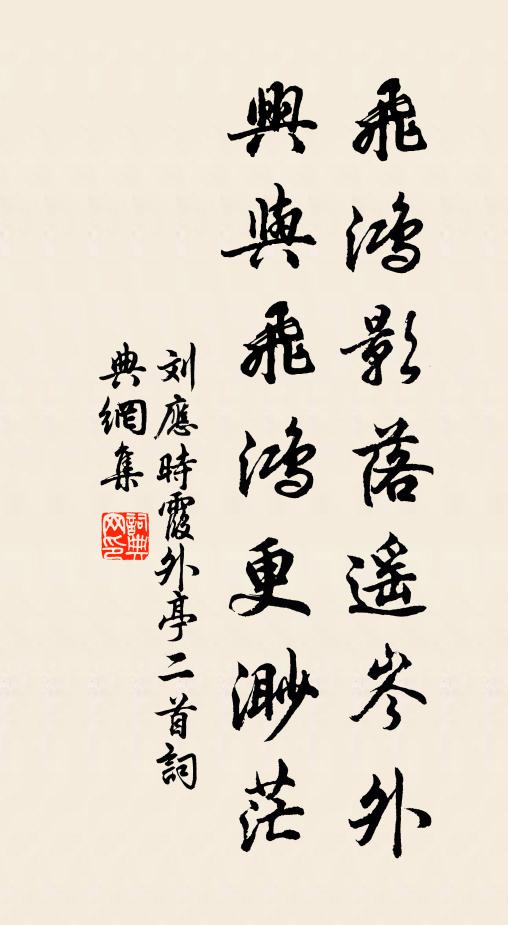 飛鴻影落遥岑外
興與飛鴻更渺茫
刘應時霞外亭二首詞
典網集
詞典
网印